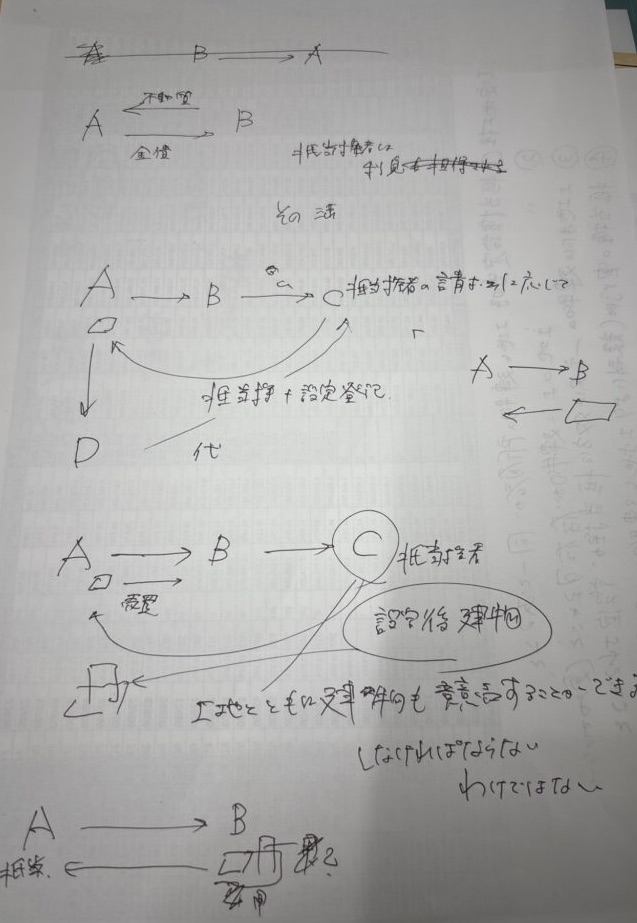 A B → A
不動産
A B
金債
抵当権者は
利息を担得する
その 済
A → B → C 抵当権者の請求に応じて
a
「
A → B
抵当権 設定登記
D 代
A → B → C 抵当権者
売買
設定後 建物
土地とともに建物も 競売することができる
しなければならない
わけではない
A → B
抵当